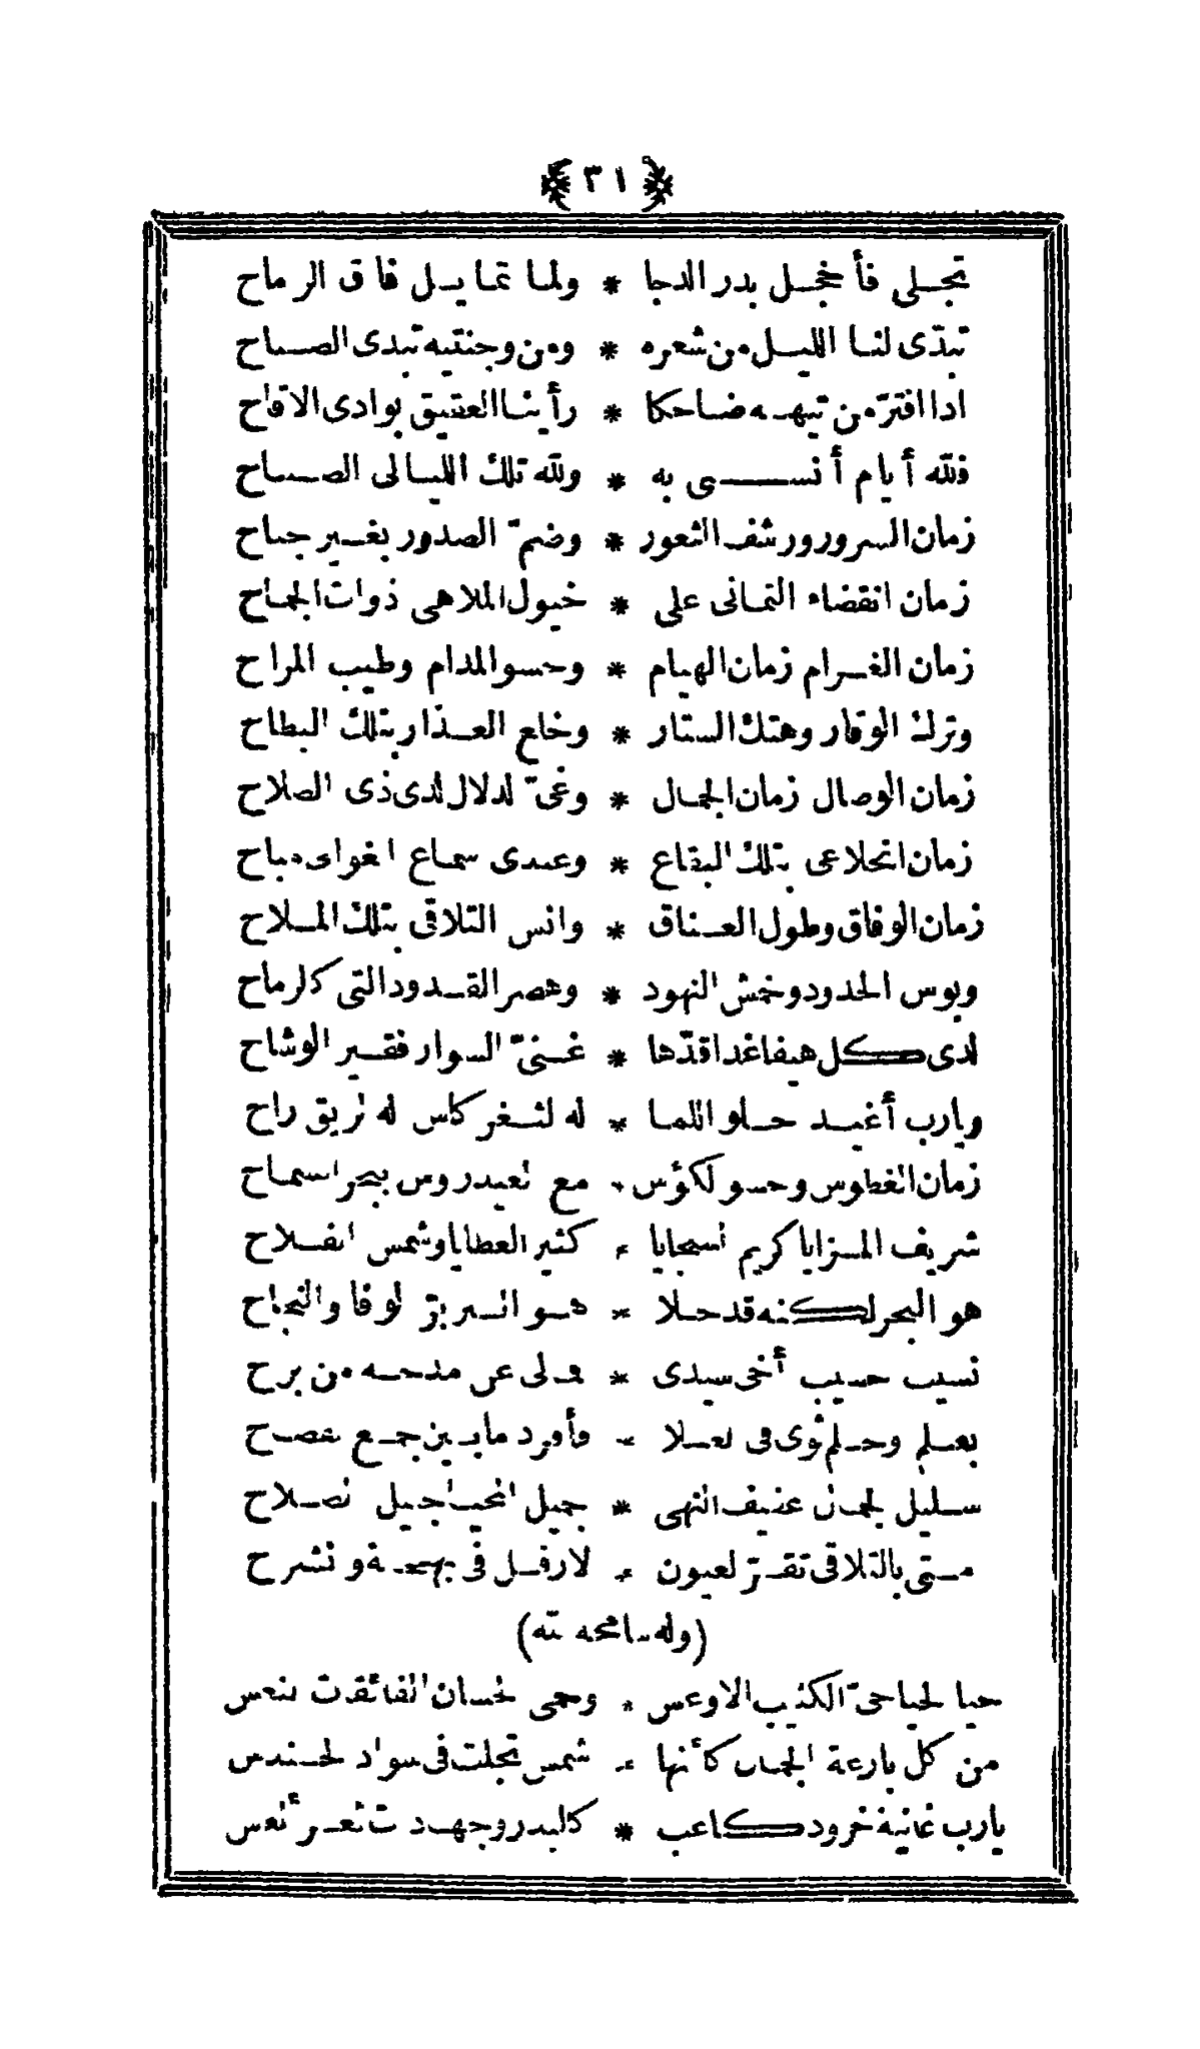 ﴿ ٣١ ﴾
تجلى فأخجل بدر الدجا * ولما تمايل فاق الرماح
تبدّى لنا الليل من شعره * ومن وجنتيه تبدى الصباح
اذا افترّ من تيهه ضاحكا * رأينا العقيق بوادى الاقاح
فلله أيام أنسى به * ولله تلك الليالى الصباح
زمان السرور ورشف الثغور * وضمّ الصدور بغير جناح
زمان انقضاء التمانى على * خيول الملاهى ذوات الجماح
زمان الغرام زمان الهيام * وحسو المدام وطيب المراح
وترك الوقار وهتك الستار * وخلع العذار بتلك البطاح
زمان الوصال زمان الجمال * وغىّ لدلال لدى ذى الصلاح
زمان انخلاعى بتلك البقاع * وعندى سماع الغوانى مباح
زمان الوفاق وطول العناق * وانس التلاقى بتلك الملاح
وبوس الخدود وخمش النهود * وهصر القدود التى كالرماح
لدى كل هيفا غدا قدّها * غنىّ السوار فقير الوشاح
ويارب أغيد حلو اللما * له لثغر كاس له لريق راح
زمان الغطوس وحسو لكؤس * مع لعيدروس ببحر السماح
شريف المزايا كريم السجايا * كثير العطايا وشمس الفلاح
هو البحر لكنه قد حلا * هو البر برّ لوفا والنجاح
نسيب حسيب أخى سيدى * فلى عن مدحه من براح
بعلم وحلم ثوى فى لعلا * وأفرد مابين جمع
سليل لجمال عفيف النهى * جميل المحيا جيل لصلاح
متى بالتلاقى تقرّ لعيون * لارفل فى بهجة وانشراح
(وله سامحه الله)
حيا لحيا حىّ الكثيب الاوعس * وحمى لحسان الفائقات لنعس
من كل بارعة الجمال كأنها * شمس تجلت فى سواد لحندس
يارب غانية خرود كاعب * كالبدر وجهه ذات ثغر ألعس